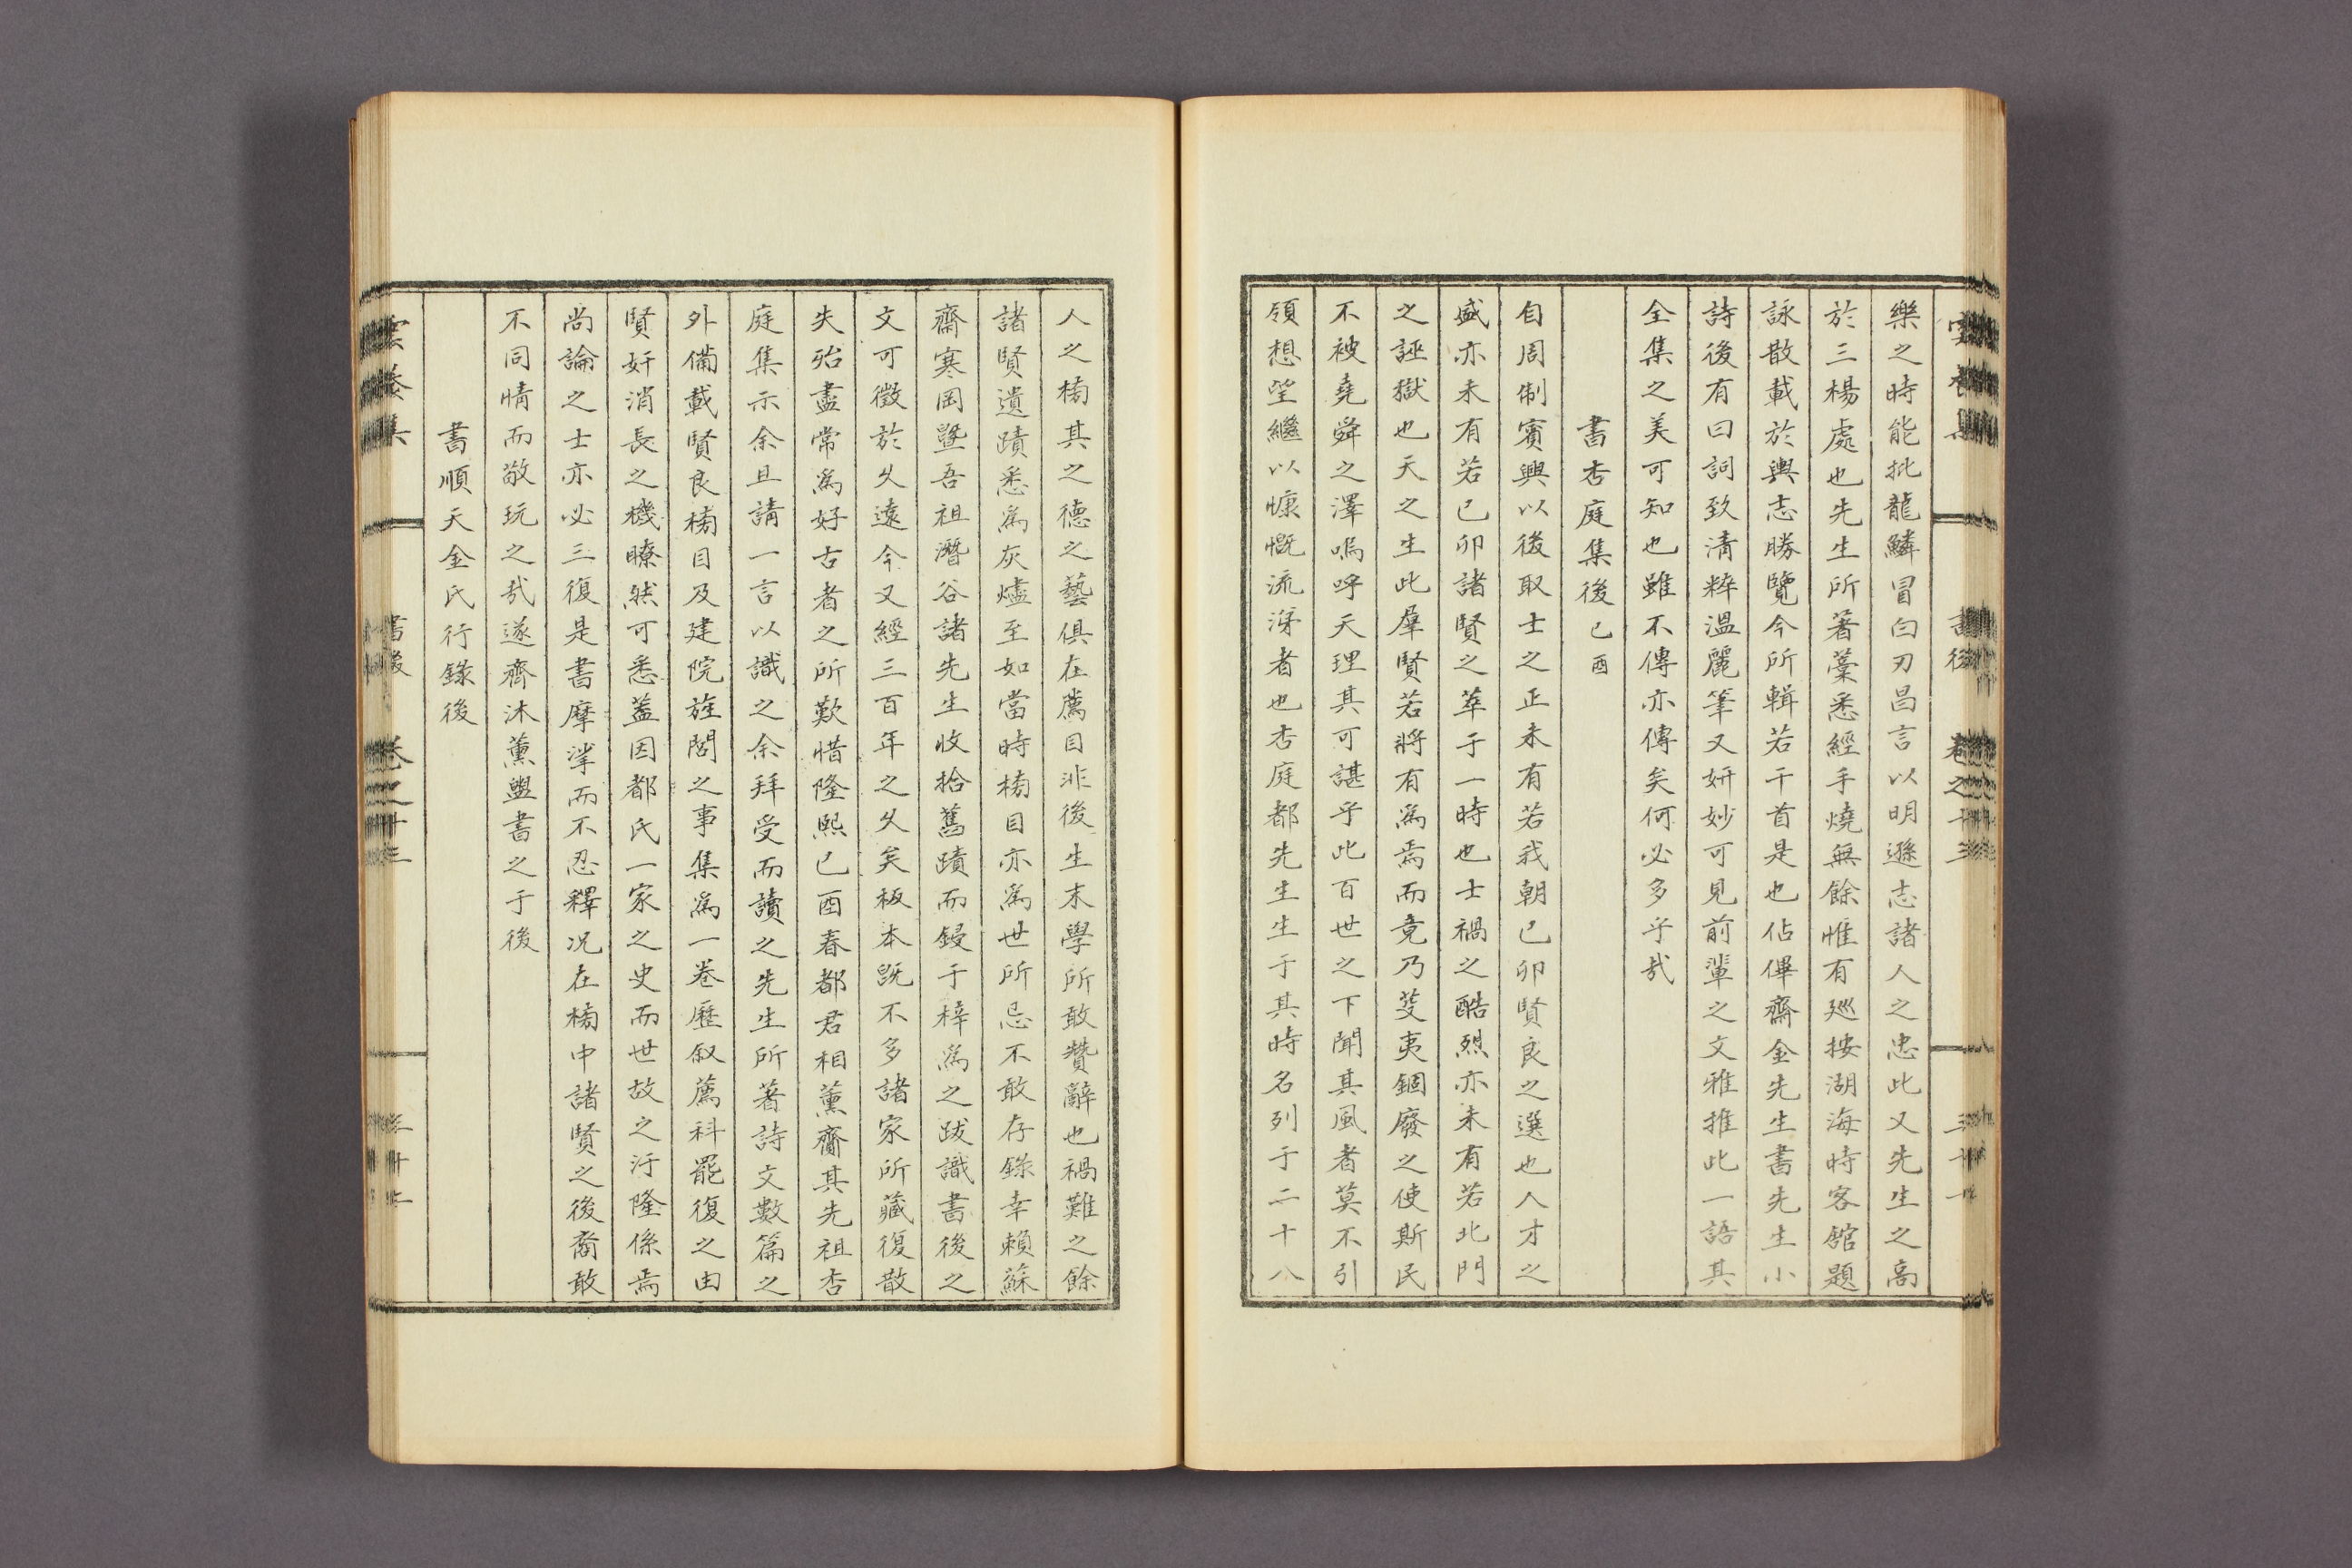 樂之時能批龍鱗冒白刃昌言以明遜志諸人之忠此又先生之高
於三楊處也先生所著藁悉經手燒無餘惟有廵按湖海時客舘題
詠散載於輿志勝覽今所輯若干首是也佔僤齋金先生書先生小
詩後有曰詞致清粹溫麗筆又姸妙可見前輩之文雅推此一語其
全集之美可知也雖不傳亦傳矣何必多乎㢤
書杏庭集後 己酉
自周制賓興以後取士之正未有若我朝己卯賢良之選也人才之
盛亦未有若己卯諸賢之萃于一時也士禍之酷烈亦未有若北門
之誣獄也天之生此羣賢若將有爲焉而竟乃芟夷錮廢之使斯民
不被堯舜之澤嗚呼天理其可諶乎此百世之下聞其風者莫不引
領想望繼以慷慨流涕者也杏庭都先生生于其時名列于二十八
人之榜其之德之藝俱在薦目非後生末學所敢贊辭也禍難之餘
諸賢遺蹟悉爲灰燼至如當時榜目亦爲世所忌不敢存錄幸賴蘇
齋寒岡曁吾祖潛谷諸先生收拾舊蹟而鋟于梓爲之跋識書後之
文可徵於久遠今又經三百年之久矣板本旣不多諸家所藏復散
失殆盡常爲好古者之所歎惜隆熙己酉春都君相薰齎其先祖杏
庭集示余且請一言以識之余拜受而讀之先生所著詩文數篇之
外備載賢良榜目及建院旌閭之事集爲一卷歷叙薦科罷復之由
賢奸消長之機瞭然可悉蓋因都氏一家之史而世故之汙隆係焉
尚論之士亦必三復是書摩挲而不忍釋况在榜中諸賢之後裔敢
不同情而敬玩之㢤遂齊沐薰盥書之于後
書順天金氏行錄後